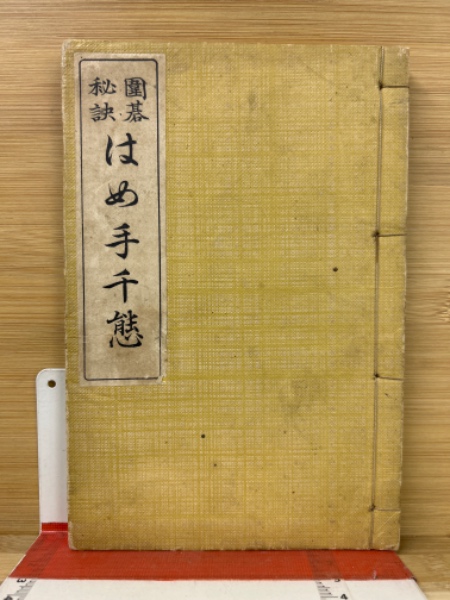 圍碁
秘訣
はめ手千態